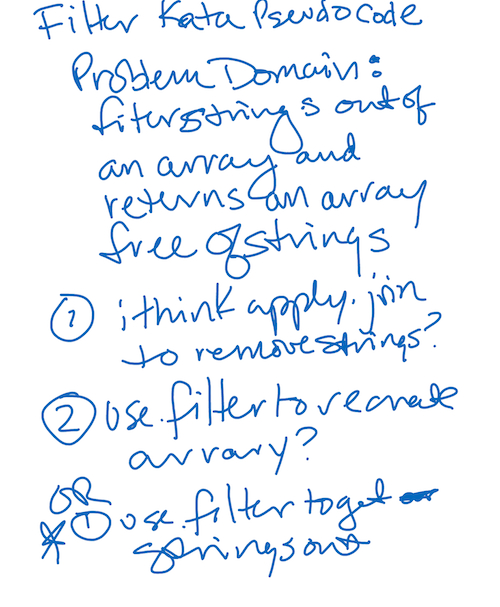 Filter Kata PseudoCode
Problem Domain:
filters strings out of
an array and
returns an array
free of strings
① i think apply .join
to remove strings?
② use .filter to recreate
arrary?
OR
* ① use .filter to get
strings out